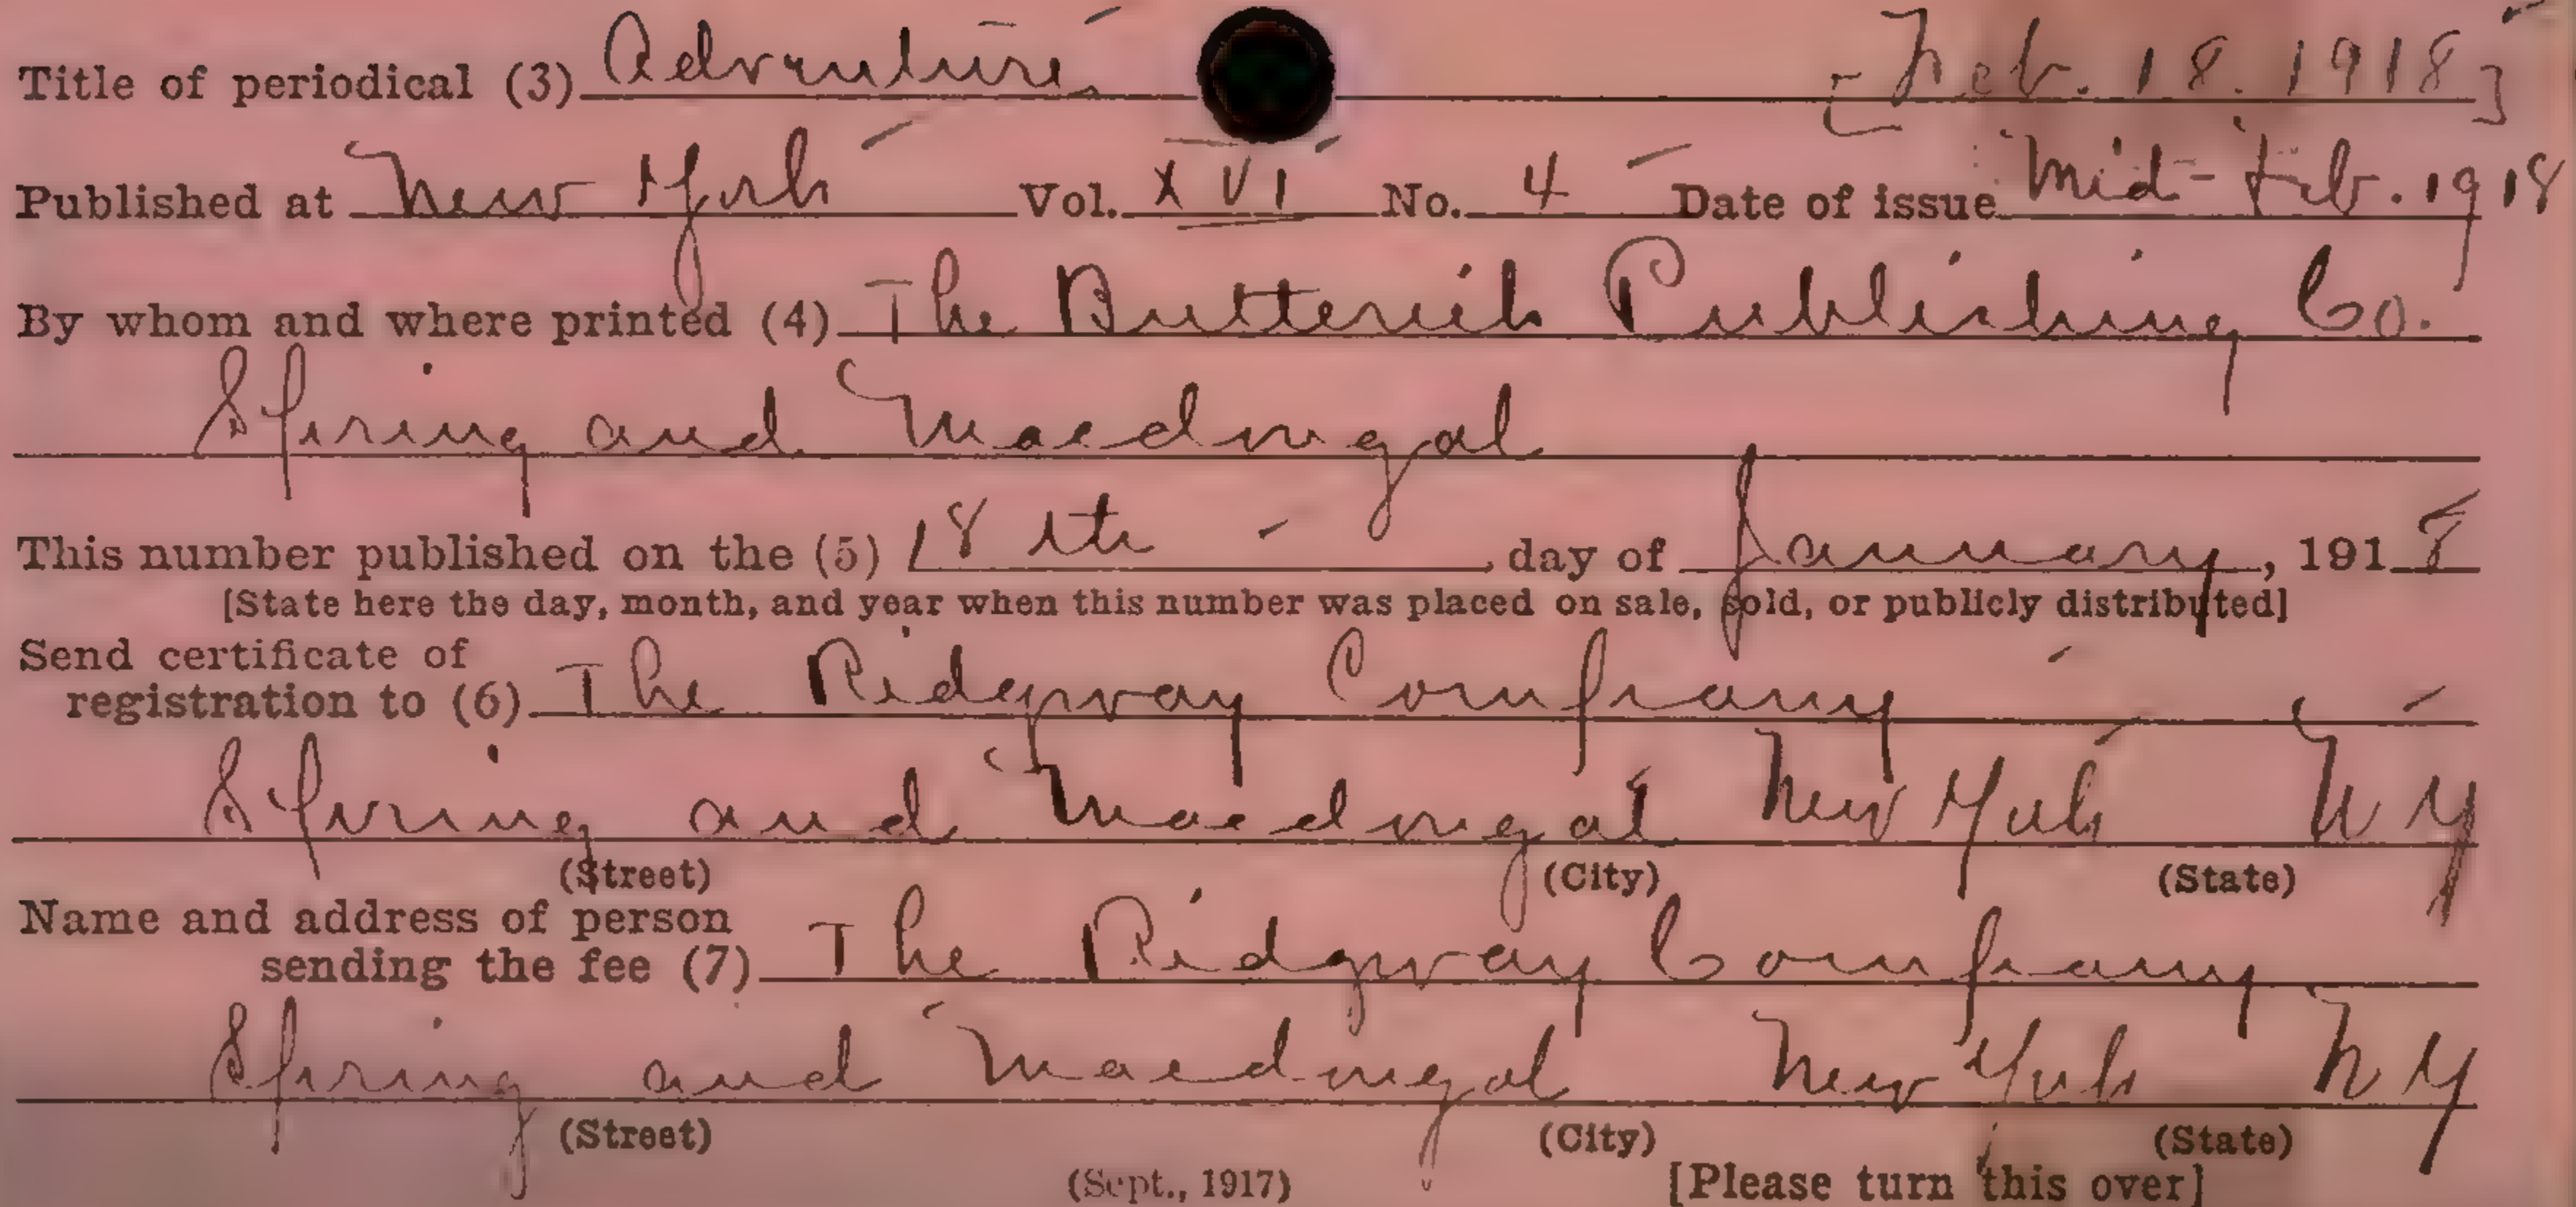 Title of periodical (3) Adventure [Feb. 18. 1918]
Published at New York Vol. XVI No. 4 Date of issue Mid-Feb. 1918
By whom and where printed (4) The Butterick Publishing Co.
Spring and Macdougal
This number published on the (5) 18th day of January, 1918
[State here the day, month, and year when this number was placed on sale, sold, or publicly distributed]
Send certificate of
registration to (6) The Ridgway Company
Spring and Macdougal New York N Y
(Street) (City) (State)
Name and address of person
sending the fee (7) The Ridgway Company
Spring and Macdougal New York N Y
(Street) (City) (State)
(Sept., 1917) [Please turn this over]